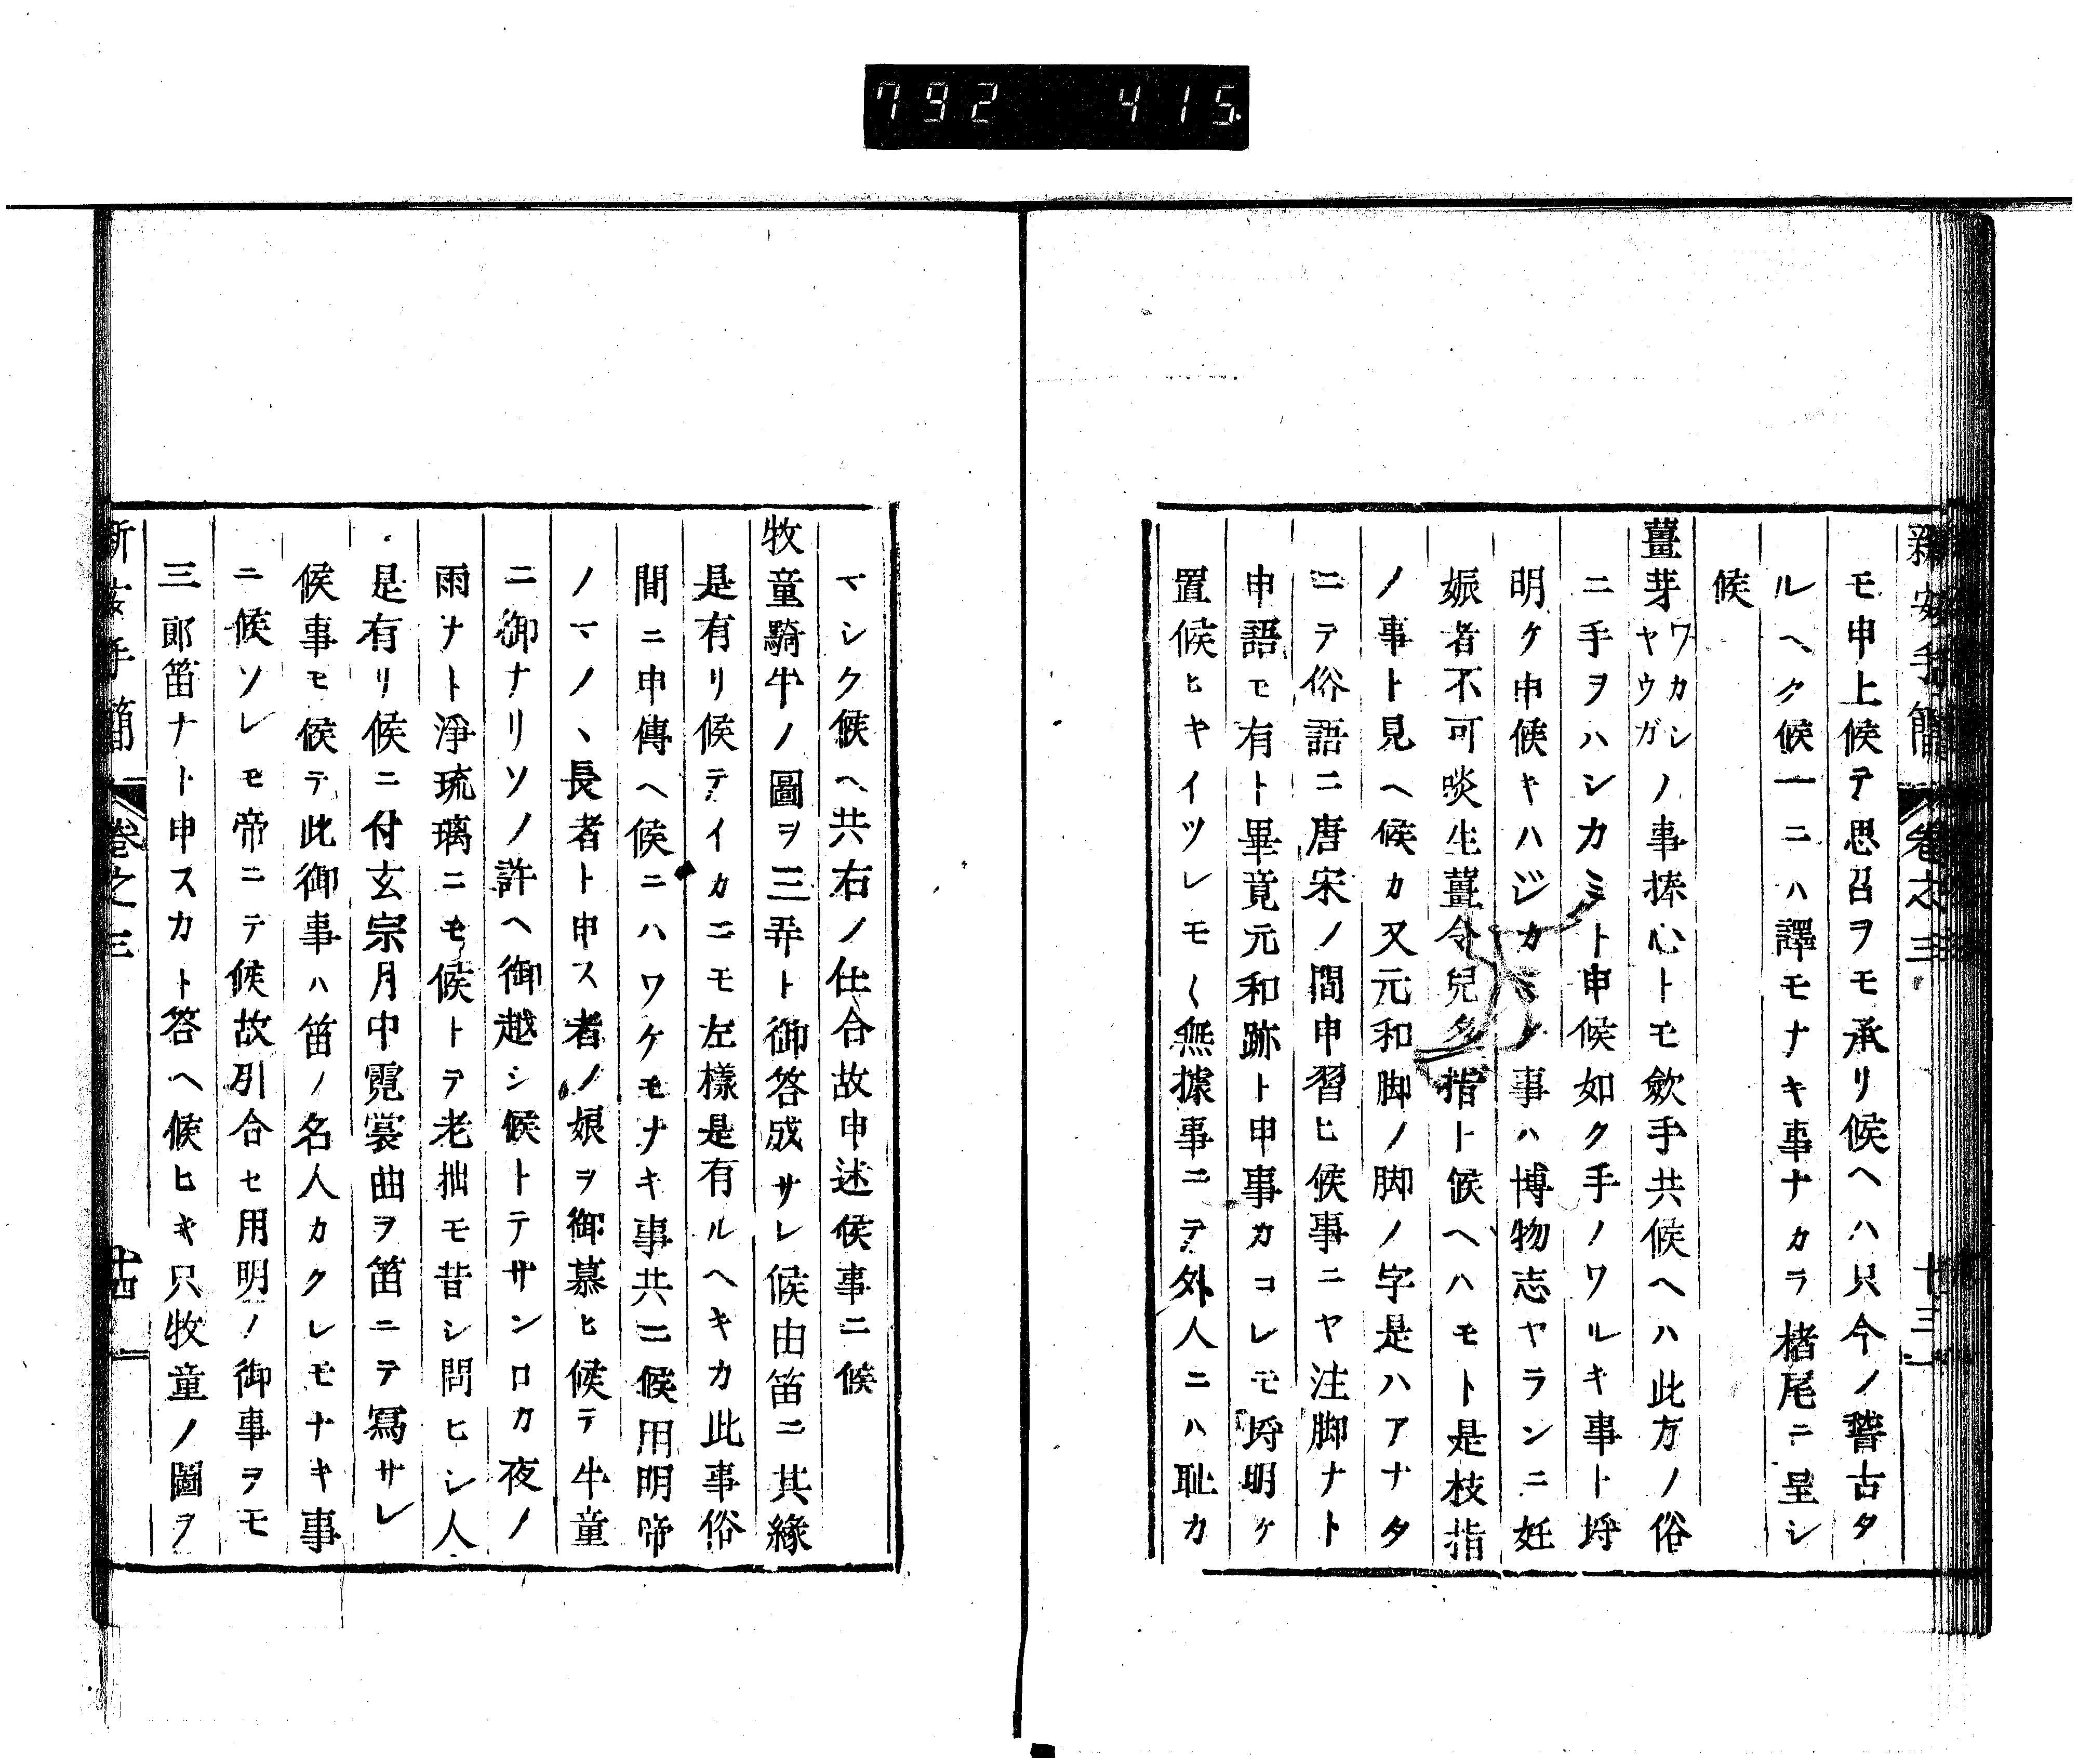 792 415
新安手簡 卷之三 十三
モ申上候テ思召ヲモ承リ候ヘハ只今ノ瞽古タ
ルヘク候一ニハ譯モナキ事ナカラ楮尾ニ呈シ
候
薑芽ワカシヤウガノ事捧心トモ斂手共候ヘハ此方ノ俗
ニ手ヲハシカミト申候如ク手ノワルキ事ト埒
明ケ申候キハジカミノ事ハ博物志ヤランニ妊
娠者不可啖生薑令兒多指ト候ヘハモト是枝指
ノ事ト見ヘ候カ又元和脚ノ脚ノ字是ハアナタ
ニテ俗語ニ唐宋ノ間申習ヒ候事ニヤ注脚ナト
申語モ有ト畢竟元和跡ト申事カコレモ埒明ケ
置候ヒキイツレモ〱無據事ニテ外人ニハ耻カ
マシク候ヘ共右ノ仕合故申述候事ニ候
牧童騎牛ノ圖ヲ三弄ト御答成サレ候由笛ニ其緣
是有リ候テイカニモ左樣是有ルヘキカ此事俗
間ニ申傳ヘ候ニハワケモナキ事共ニ候用明帝
ノマノヽ長者ト申ス者ノ娘ヲ御慕ヒ候テ牛童
ニ御ナリソノ許ヘ御越シ候トテサンロカ夜ノ
雨ナト淨琉璃ニモ候トテ老拙モ昔シ問ヒシ人
是有リ候ニ付玄宗月中霓裳曲ヲ笛ニテ寫サレ
候事モ候テ此御事ハ笛ノ名人カクレモナキ事
ニ候ソレモ帝ニテ候故引合セ用明ノ御事ヲモ
三郎笛ナト申スカト答ヘ候ヒキ只牧童ノ圖ヲ
新安手簡 卷之三 十四